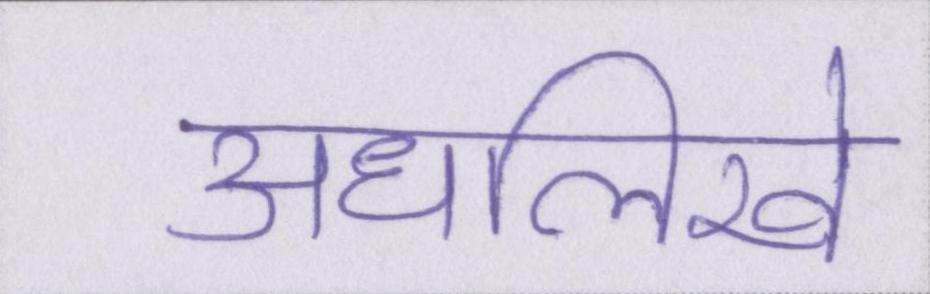 अधलिखे